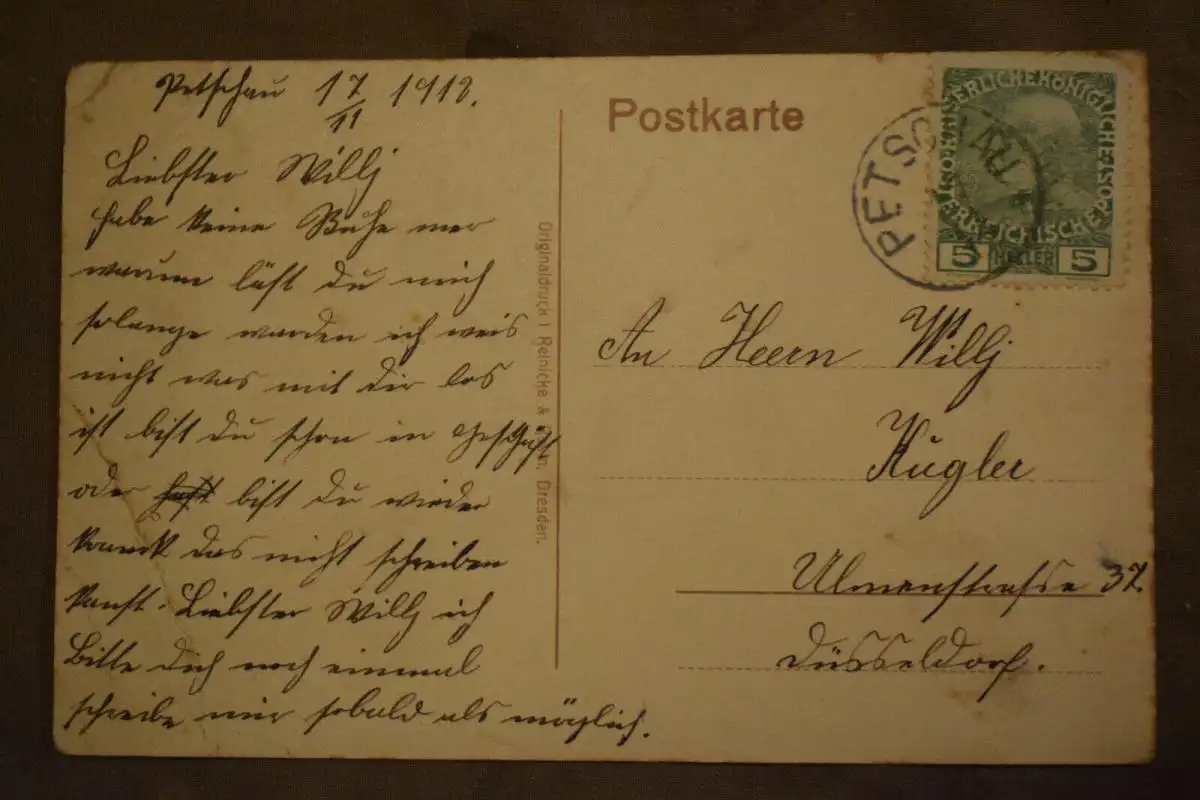 Petschau 17/11 1912.
Liebster Willj
habe keine Ruhe mer
warum läst du mich
solange warden ich weis
nicht was mit dir los
ist bist du schon in Geschäft
oder bist du wieder
krank das nicht schreiben
kanst. Liebster Willj ich
Bitte dich noch einmal
schreibe mir sobald als möglich.
Originaldruck Reinicke & Dresden.
Postkarte
PETSCHAU
KAISERLICHE KÖNIGLICHE
ÖSTERREICHISCHE POST
5 HELLER 5
An Heern Willj
Kugler
Ulmenstrasse 37.
Düsseldorf.